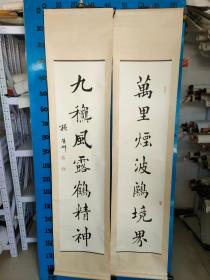 萬里煙波鷗境界
九穐風露鶴精神